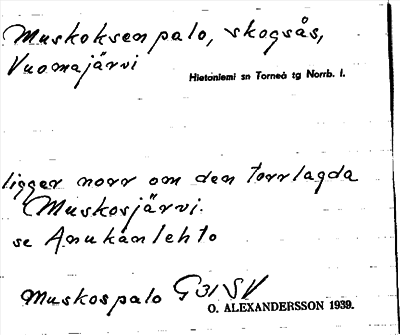 Muskoksenpalo, skogsås,
Vuomajärvi
Hietaniemi sn Torneå tg Norrb. l.
ligger norr om den torrlagda
Muskosjärvi.
se Anukanlehto
Muskospalo G31 SV
O. ALEXANDERSSON 1939.